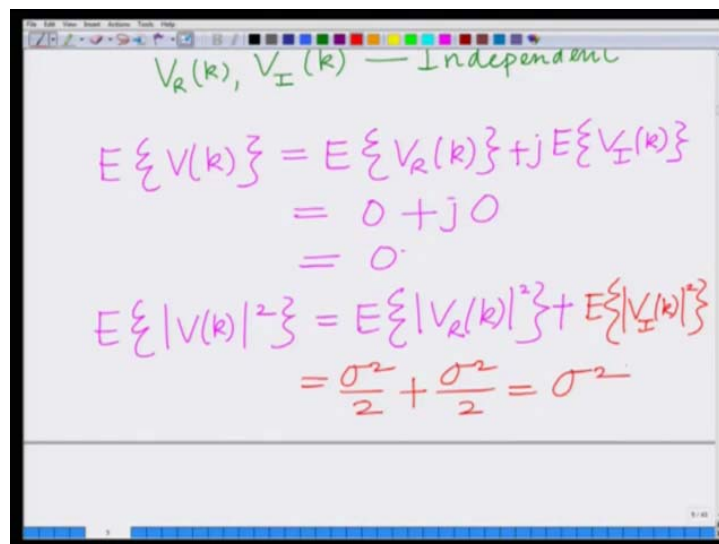 File Edit View Insert Actions Tools Help
V_R(k), V_I(k) — Independent
E{V(k)} = E{V_R(k)} + j E{V_I(k)}
= 0 + j 0
= 0
E{|V(k)|²} = E{|V_R(k)|²} + E{|V_I(k)|²}
= σ²/2 + σ²/2 = σ²